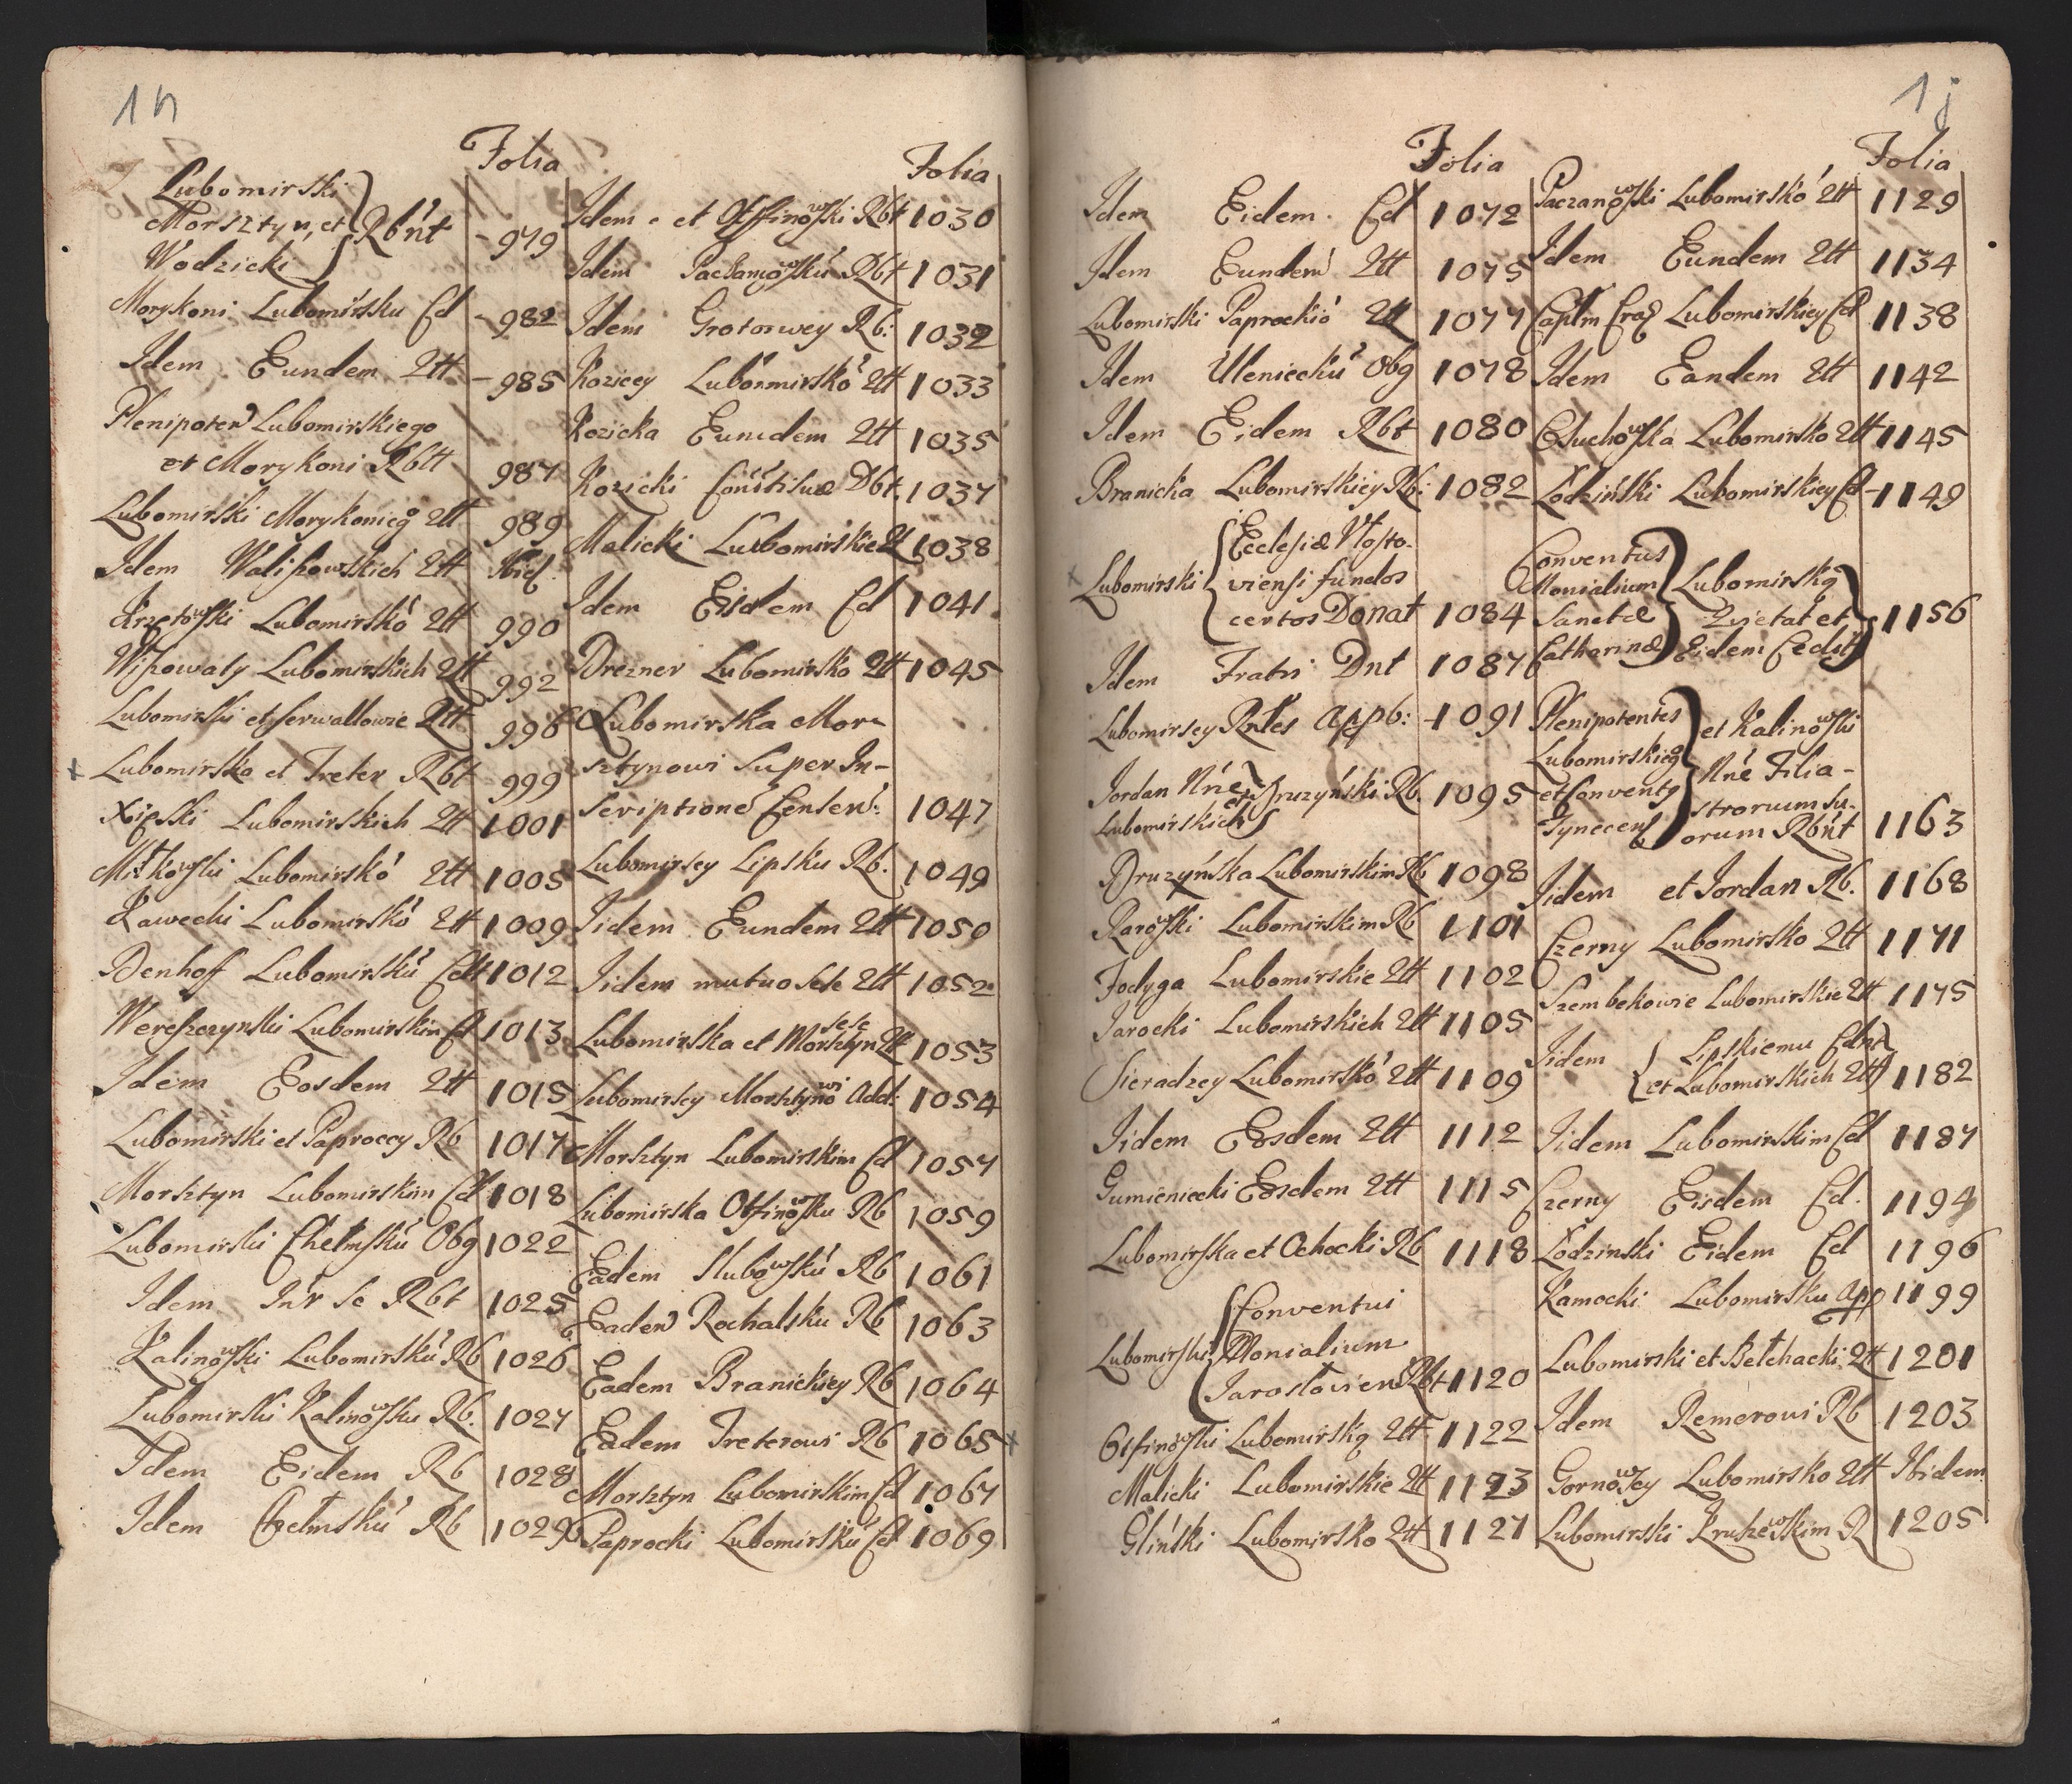 1h
Folia
Lubomirski
Morsztyn, et Rbńt - 979
Wodzicki
Morykoni Lubomirsku Cd - 982
Idem Eundem Qtt - 985
Plenipoten Lubomirskiego
et Morykoni Rbtt 987
Lubomirski Morykonieg Qtt 989
Idem Walipowskich Qtt Ibid.
Krzetowski Lubomirskó Qtt 990
Lubomirskich Qtt 992
Lubomirski et Serwallowie Qtt 996
x Lubomirska et Treter Rbt 999
Xięski Lubomirskich Qtt 1001
Mitkowski Lubomirskó Qtt 1005
Kawecki Lubomirskó Qtt 1009
Denhoff Lubomirskú Cdt 1012
Wereszczynski Lubomirskim Cd 1013
Idem Eosdem Qtt 1015
Lubomirski et Paproccy Rb 1017
Morsztyn Lubomirskim Cd 1018
Lubomirski Chełmskú Obg 1022
Idem Inr Se Rbt 1025
Kalinowski Lubomirskú Rb 1026
Lubomirski Kalinowsku Rb. 1027
Idem Eidem Rb 1028
Idem Chełmskú Rb 1029
Folia
Idem et Otffinowski Rbt 1030
Idem Rbt 1031
Idem Grotorwey Rb: 1032
Koziccy Lubormirskó Qtt 1033
Kozicka Eumdem Qtt 1035
Kozicki Dbt. 1037
Malicki Lubomirskie Qt 1038
Idem Eisdem Cd 1041
Drezner Lubomirsko Qtt 1045
Lubomirska Mor-
sztynowi Super In-
scriptione Censen: 1047
Lubomirscy Lipsku Rb. 1049
Iidem Eundem Qtt 1050
Iidem mutuo sese Qtt 1052
Lubomirska et Morsztyn sese Qtt 1053
Lubomirscy Morsztynowi Add: 1054
Morsztyn Lubomirskim Cd 1057
Lubomirska Otfinowsku Rb 1059
Eadem Slubowskú Rb 1061
Eadem Rochalsku Rb 1063
Eadem Branickiey Rb 1064
Eadem Treterowi Rb 1065 x
Morsztyn Lubomirskim Cd 1067
Paprocki Lubomirskú Cd 1069
1j
Folia
Idem Eidem Cd 1072
Idem Eundem Qtt 1075
Lubomirski Paprockió Qtt 1077
Idem Ulenieckú Obg 1078
Idem Eidem Rbt 1080
Branicka Lubomirskiey Rb: 1082
x Lubomirski Ecclesiæ
viensi fundos
certos Donat 1084
Idem Fratri Dnt 1087
Lubomirscy Rntes App6: - 1091
Jordan Nńe et Druzyński Rb. 1095
Lubomirskich
Druzyńska Lubomirskim Rb 1098
Rarowski Lubomirskim Rb 1101
Fodyga Lubomirskie Qtt 1102
Jarocki Lubomirskich Qtt 1105
Sieradzcy Lubomirskó Qtt 1109
Iidem Eosdem Qtt 1112
Gumieniecki Eosdem Qtt 1115
Lubomirska et Ochocki Rb 1118
Lubomirski Conventui
Monialium
Jarosłavien Rbt 1120
Otfinowski Lubomirską Qtt 1122
Malicki Lubomirskie Qtt 1123
Gliński Lubomirsko Qtt 1127
Folia
Paczanowski Lubomirskó Qtt 1129
Idem Eundem Qtt 1134
Captm Crac Lubomirskiey Cd 1138
Idem Eandem Qtt 1142
Głuchowska Lubomirsko Qtt 1145
Łodziński Lubomirskiey Cd - 1149
Conventus
Monialium Lubomirską
Sanctæ Qvietat et 1156
Catharinæ Eidem Cedit
Plenipotentes
Lubomirskieg et Kalinowski
et Conventg Nńe Filia-
Tynecens strorum su-
orum Rbńt 1163
Iidem et Jordan Rb. 1168
Czerny Lubomirsko Qtt 1171
Szembekowie Lubomirskie Qtt 1175
Iidem Lipskiemu Cdnt
et Lubomirskich Qtt 1182
Iidem Lubomirskim Cd 1187
Czerny Eisdem Cd. 1194
Łodzinski Eidem Cd 1196
Kamocki Lubomirsku App 1199
Lubomirski et Bełchacki Qtt 1201
Idem Remerowi Rb 1203
Gornowscy Lubomirsko Qtt Ibidem
Lubomirski Kruszewskim R 1205